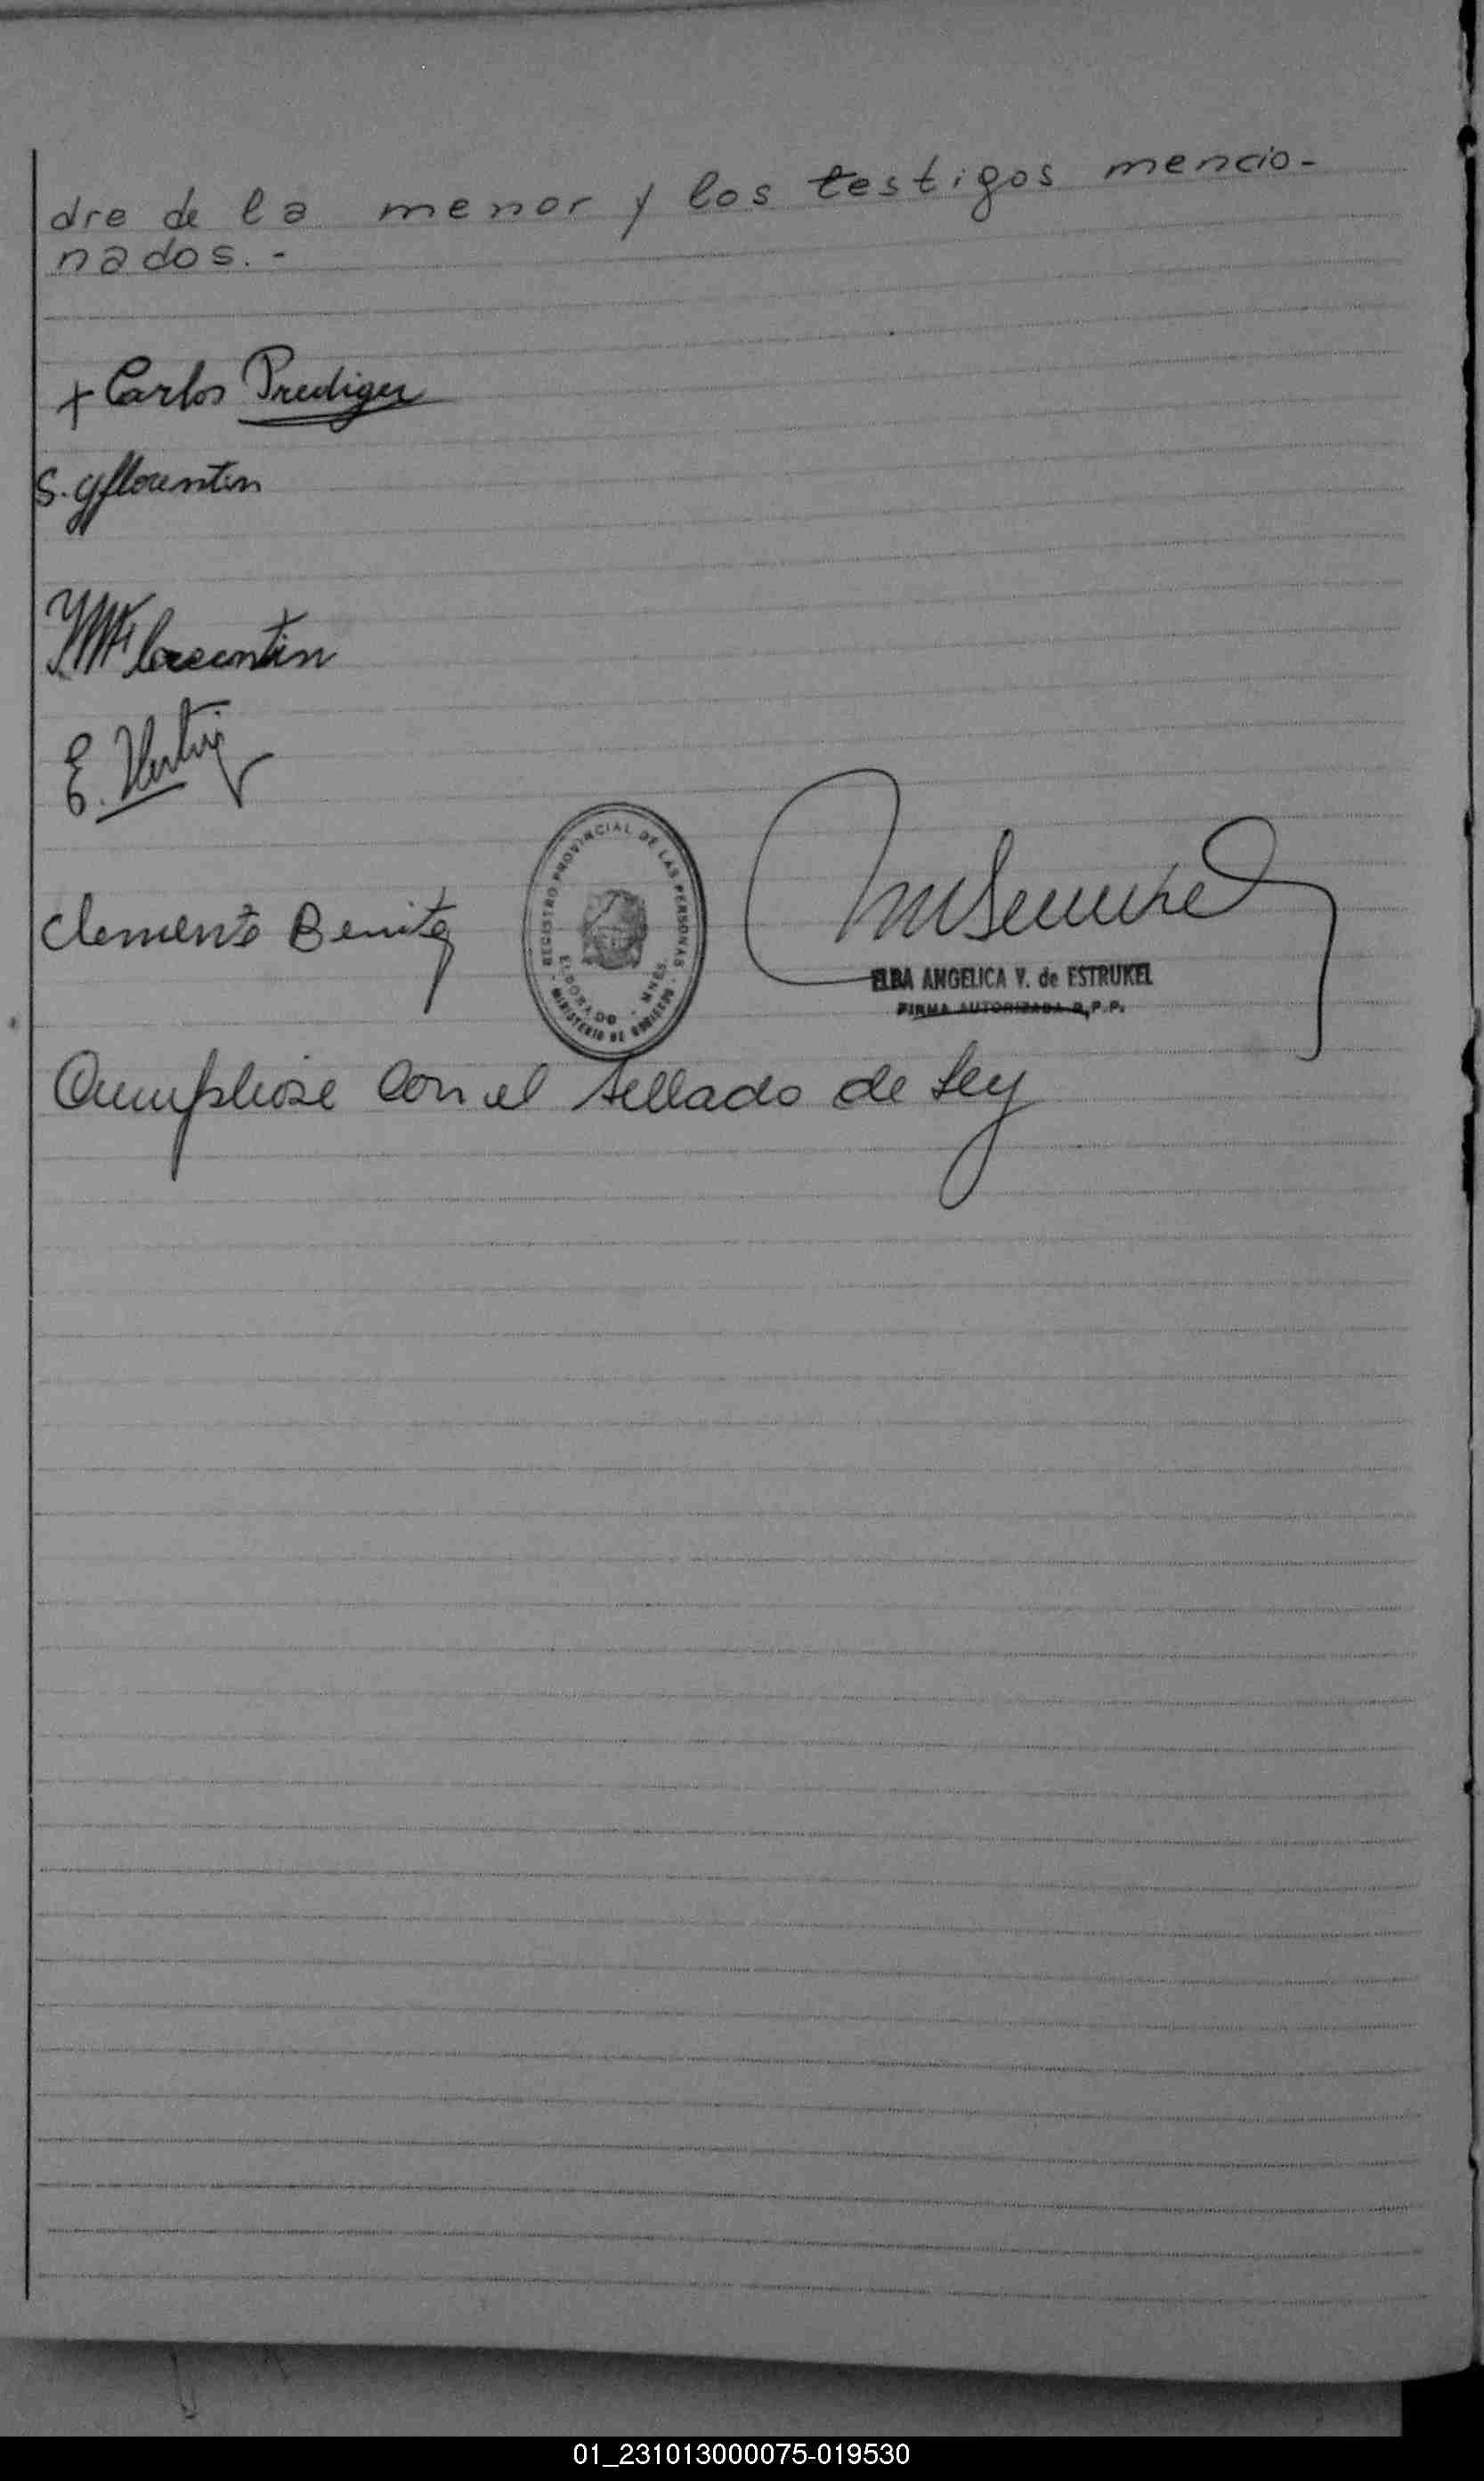 dre de la menor y los testigos mencio-
nados. -
+ Carlos Prediger
S. G florentin
Florentin
E.
Clemente Benitez
REGISTRO PROVINCIAL DE LAS PERSONAS
ELDORADO - MNES.
- MINISTERIO DE GOBIERNO -
ELBA ANGELICA V. de ESTRUKEL
FIRMA AUTORIZADA R.P.P.
Cumpliose con el sellado de Ley
01_231013000075-019530